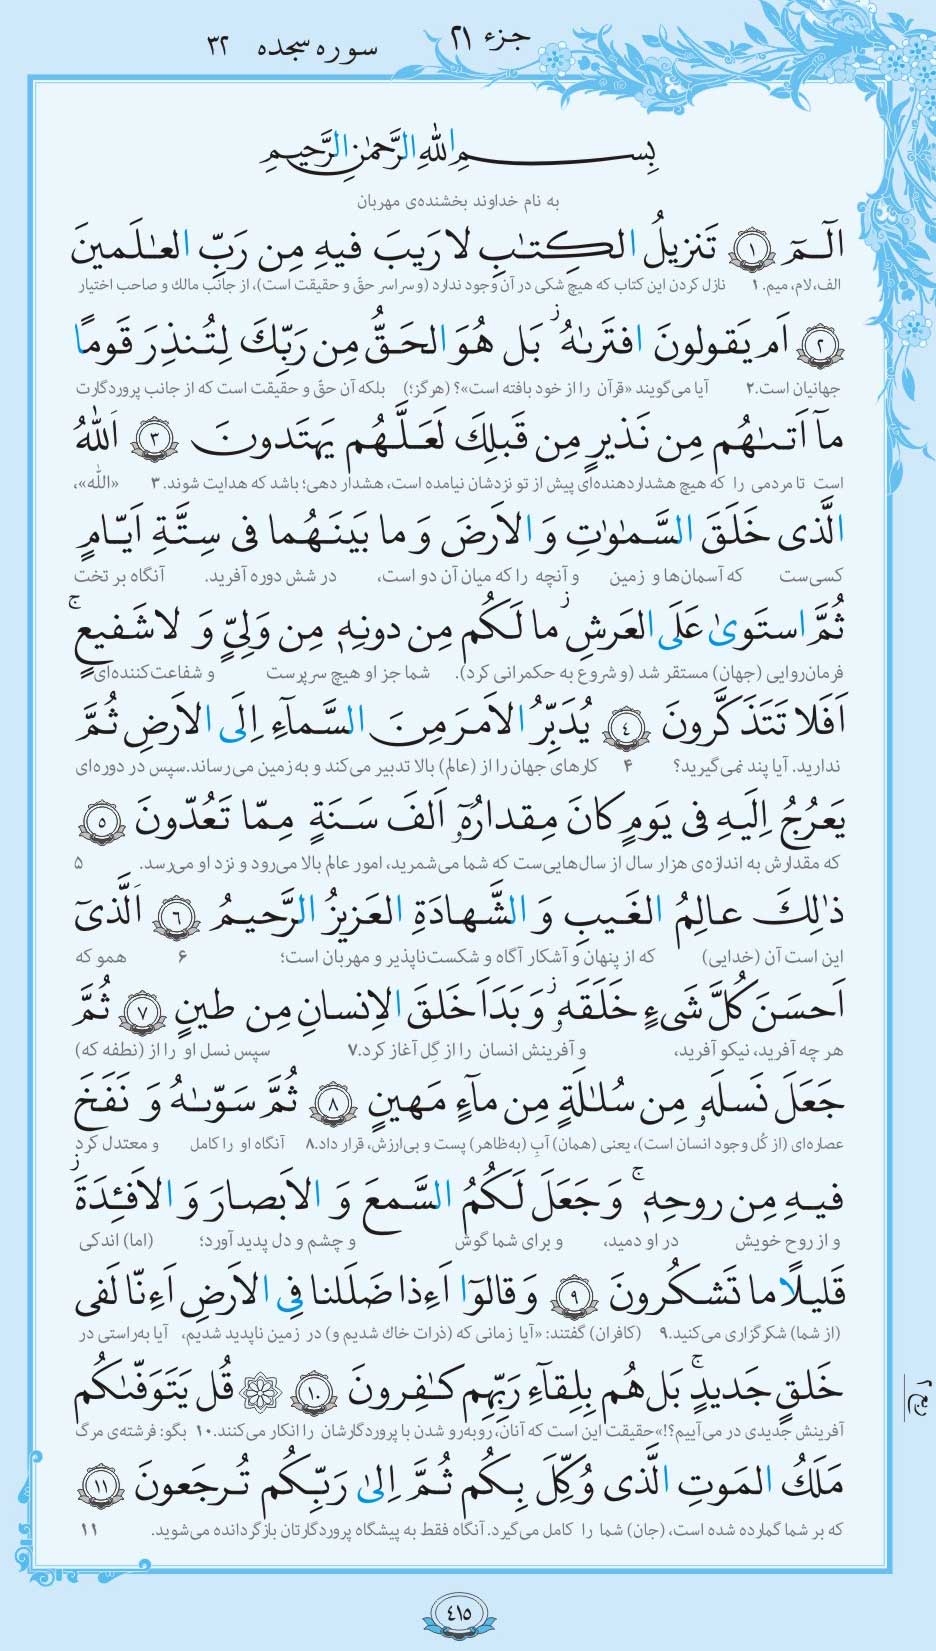 جزء ٢١
سوره سجده ٣٢
بِسمِ اللّٰهِ الرَّحمٰنِ الرَّحیمِ
به نام خداوند بخشنده‌ی مهربان
الٓـمٓ ﴿١﴾ تَنزیلُ الکِتٰبِ لا رَیبَ فیهِ مِن رَبِّ العٰلَمینَ
الف، لام، میم. ۱ نازل کردن این کتاب که هیچ شکی در آن وجود ندارد (و سراسر حقّ و حقیقت است)، از جانب مالك و صاحب اختیار
﴿٢﴾ اَم یَقولونَ افتَرىٰهُ ۚ بَل هُوَ الحَقُّ مِن رَبِّكَ لِتُنذِرَ قَومًا
جهانیان است.۲ آیا می‌گویند «قرآن را از خود بافته است»؟ (هرگز؛) بلکه آن حقّ و حقیقت است که از جانب پروردگارت
مآ اَتىٰهُم مِن نَذیرٍ مِن قَبلِكَ لَعَلَّهُم یَهتَدونَ ﴿٣﴾ اَللّٰهُ
است تا مردمی را که هیچ هشداردهنده‌ای پیش از تو نزدشان نیامده است، هشدار دهی؛ باشد که هدایت شوند. ۳ «اللّٰه»،
الَّذی خَلَقَ السَّمٰوٰتِ وَ الاَرضَ وَ ما بَینَهُما فی سِتَّةِ اَیّامٍ
کسی‌ست که آسمان‌ها و زمین و آنچه را که میان آن دو است، در شش دوره آفرید. آنگاه بر تخت
ثُمَّ استَوىٰ عَلَی العَرشِ ز ما لَکُم مِن دونِه۪ مِن وَلِیٍّ وَ لا شَفیعٍ ج
فرمان‌روایی (جهان) مستقر شد (و شروع به حکمرانی کرد). شما جز او هیچ سرپرست و شفاعت‌کننده‌ای
اَفَلا تَتَذَکَّرونَ ﴿٤﴾ یُدَبِّرُ الاَمرَ مِنَ السَّمآءِ اِلَی الاَرضِ ثُمَّ
ندارید. آیا پند نمی‌گیرید؟ ۴ کارهای جهان را از (عالم) بالا تدبیر می‌کند و به زمین می‌رساند. سپس در دوره‌ای
یَعرُجُ اِلَیهِ فی یَومٍ کانَ مِقدارُهٗٓ اَلفَ سَنَةٍ مِمّا تَعُدّونَ ﴿٥﴾
که مقدارش به اندازه‌ی هزار سال از سال‌هایی‌ست که شما می‌شمرید، امور عالم بالا می‌رود و نزد او می‌رسد. ۵
ذٰلِكَ عالِمُ الغَیبِ وَ الشَّهادَةِ العَزیزُ الرَّحیمُ ﴿٦﴾ اَلَّذیٓ
این است آن (خدایی) که از پنهان و آشکار آگاه و شکست‌ناپذیر و مهربان است؛ ۶ همو که
اَحسَنَ کُلَّ شَیءٍ خَلَقَهٗ ز وَ بَدَاَ خَلقَ الاِنسانِ مِن طینٍ ﴿٧﴾ ثُمَّ
هر چه آفرید، نیکو آفرید، و آفرینش انسان را از گِل آغاز کرد.۷ سپس نسل او را از (نطفه که)
جَعَلَ نَسلَهٗ مِن سُلٰلَةٍ مِن مآءٍ مَهینٍ ﴿٨﴾ ثُمَّ سَوّىٰهُ وَ نَفَخَ
عصاره‌ای (از کُل وجود انسان است)، یعنی (همان) آبِ (به‌ظاهر) پست و بی‌ارزش، قرار داد.۸ آنگاه او را کامل و معتدل کرد
فیهِ مِن روحِه۪ ج وَ جَعَلَ لَکُمُ السَّمعَ وَ الاَبصارَ وَ الاَفئِدَةَ ز
و از روح خویش در او دمید، و برای شما گوش و چشم و دل پدید آورد؛ (اما) اندکی
قَلیلًا ما تَشکُرونَ ﴿٩﴾ وَ قالوٓا اَءِذا ضَلَلنا فِی الاَرضِ اَءِنّا لَفی
(از شما) شکرگزاری می‌کنید.۹ (کافران) گفتند: «آیا زمانی که (ذرات خاك شدیم و) در زمین ناپدید شدیم، آیا به‌راستی در
خَلقٍ جَدیدٍ ج بَل هُم بِلِقآءِ رَبِّهِم کٰفِرونَ ﴿١٠﴾ ۞ قُل یَتَوَفّىٰکُم
آفرینش جدیدی در می‌آییم؟!» حقیقت این است که آنان، روبه‌رو شدن با پروردگارشان را انکار می‌کنند.۱۰ بگو: فرشته‌ی مرگ
مَلَكُ المَوتِ الَّذی وُکِّلَ بِکُم ثُمَّ اِلىٰ رَبِّکُم تُرجَعونَ ﴿١١﴾
که بر شما گمارده شده است، (جان) شما را کامل می‌گیرد. آنگاه فقط به پیشگاه پروردگارتان بازگردانده می‌شوید. ۱۱
٤١٥